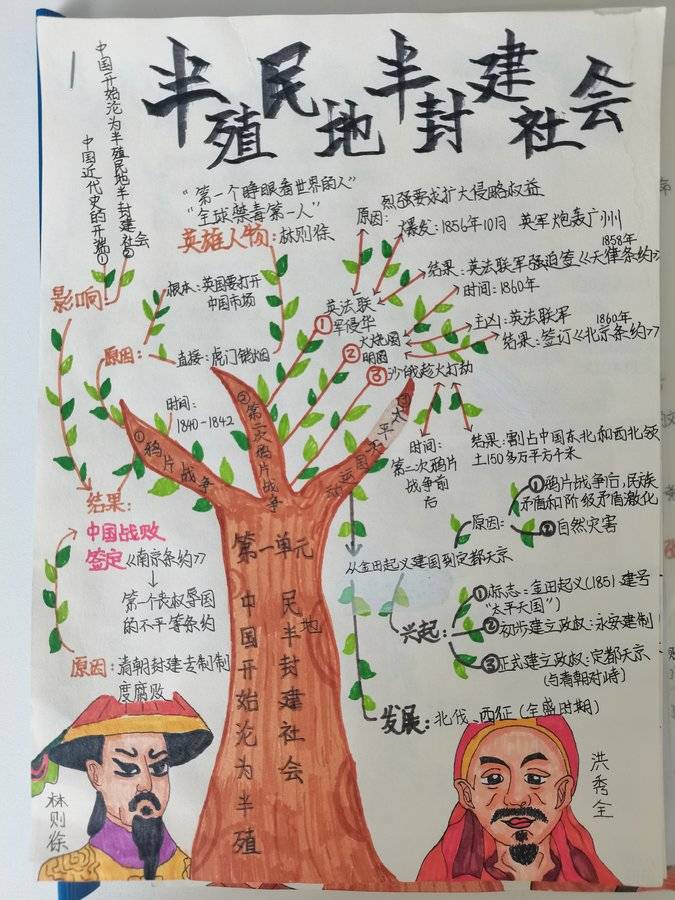 半殖民地半封建社会
1
中国开始沦为半殖民地半封建社会②
中国近代史的开端①
影响:
"第一个睁眼看世界的人"
"全球禁毒第一人"
英雄人物:林则徐
根本:英国要打开
中国市场
原因:
直接:虎门销烟
时间:
1840-1842
结果:
中国战败
签定《南京条约》
↓
第一个丧权辱国
的不平等条约
原因:清朝封建专制制
度腐败
林则徐
①鸦片战争
②第二次鸦片战争
③太平天国运动
第一单元
中国开始沦为半殖
民地半封建社会
烈强要求扩大侵略权益
原因:
爆发:1856年10月 英军炮轰广州
1858年
结果:英法联军强迫签《天津条约》
时间:1860年
英法联
①军侵华
主凶:英法联军
1860年
结果:签订《北京条约》
火烧圆
②明园
③沙俄趁火打劫
时间:
第二次鸦片
战争前
后
结果:割占中国东北和西北领
土150多万平方千米
原因:
①鸦片战争后,民族
矛盾和阶级矛盾激化
②自然灾害
从金田起义建国到定都天京
兴起:
①标志:金田起义(1851.建号
"太平天国")
②初步建立政权:永安建制
③正式建立政权:定都天京
(与清朝对峙)
发展:北伐、西征(全盛时期)
洪秀全